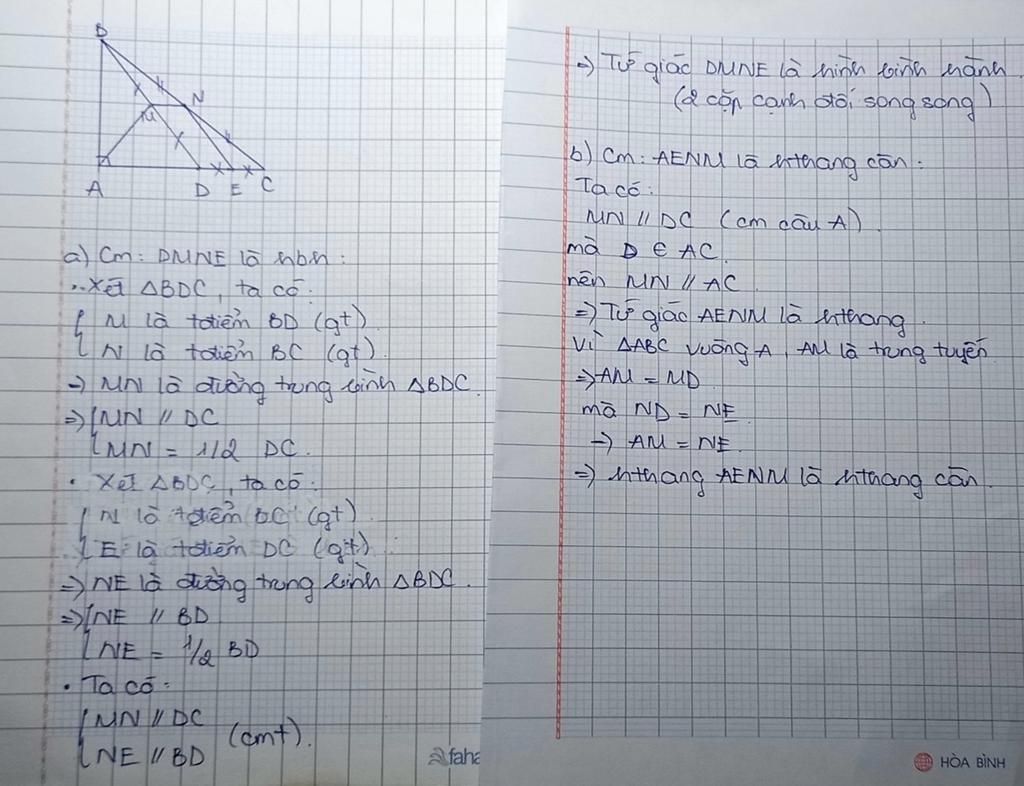 B
N
M
A D E C
a) Cm: DMNE là hbh:
• Xét ΔBDC, ta có:
{ M là tđiểm BD (gt)
{ N là tđiểm BC (gt)
=> MN là đường trung bình ΔBDC.
=> { MN // DC
{ MN = 1/2 DC.
• Xét ΔBDC, ta có:
{ N là tđiểm BC (gt)
{ E là tđiểm DC (gt)
=> NE là đường trung bình ΔBDC.
=> { NE // BD
{ NE = 1/2 BD
• Ta có:
{ MN // DC
{ NE // BD (cmt).
faha
=> Tứ giác DMNE là hình bình hành
(2 cặp cạnh đối song song)
b) Cm: AENM là hthang cân:
Ta có:
MN // DC (cm câu A)
mà D ∈ AC.
nên MN // AC
=> Tứ giác AENM là hthang.
Vì ΔABC vuông A, AM là trung tuyến
=> AM = MD
mà ND = NE
=> AM = NE.
=> hthang AENM là hthang cân.
HÒA BÌNH